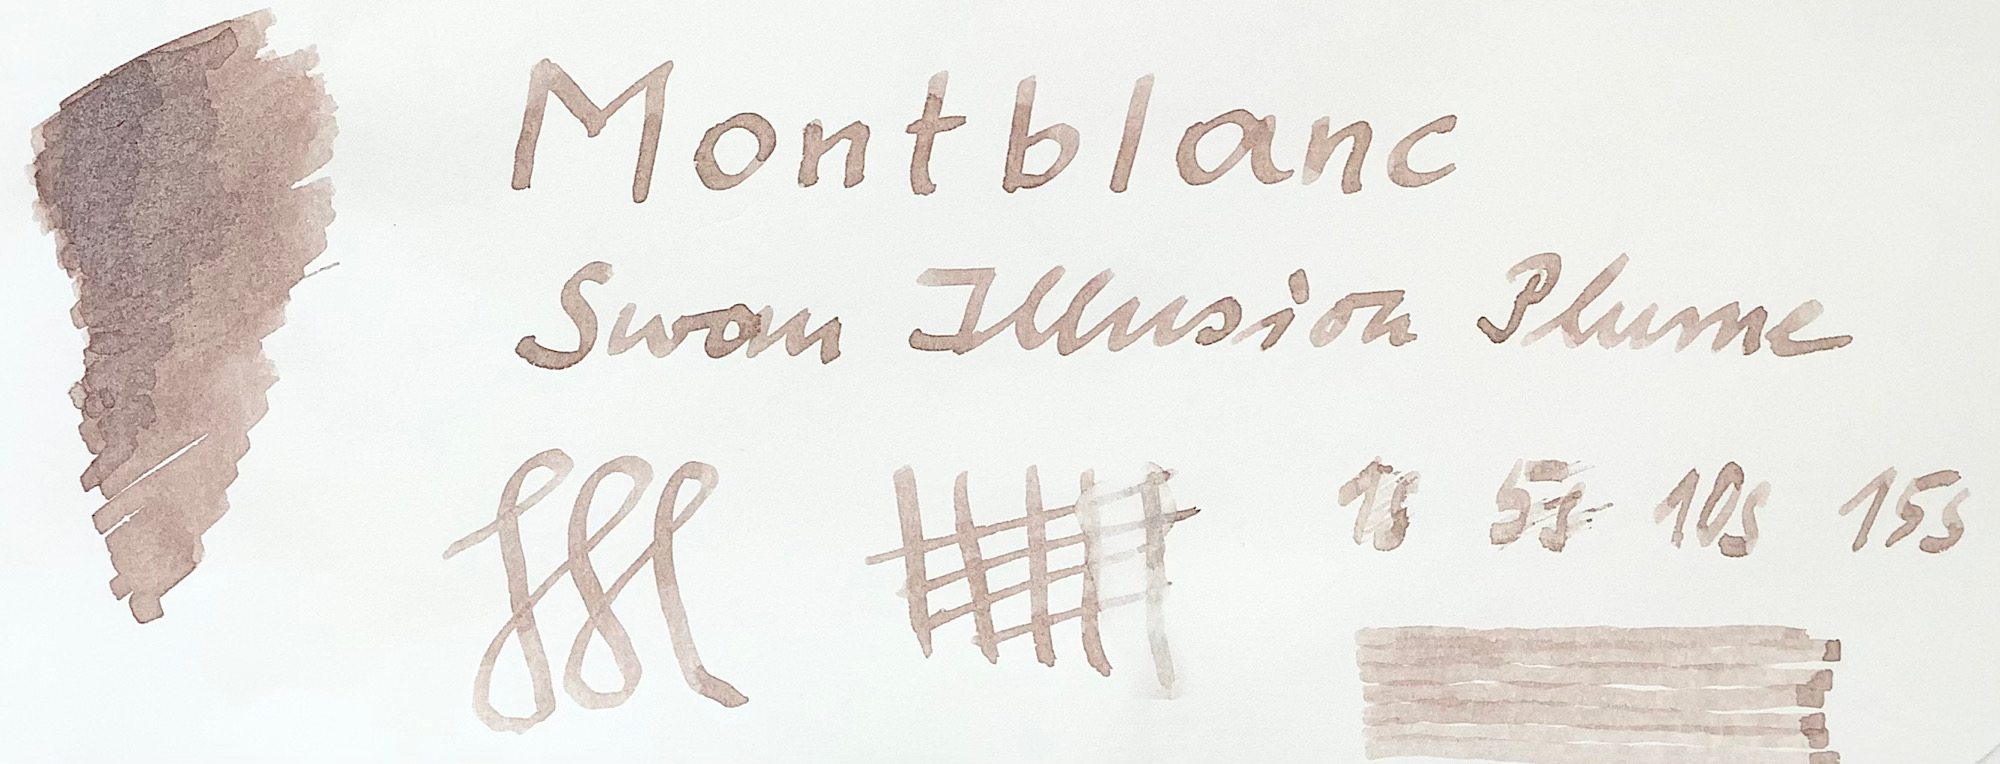 Montblanc
Swan Illusion Plume
1s 5s 10s 15s